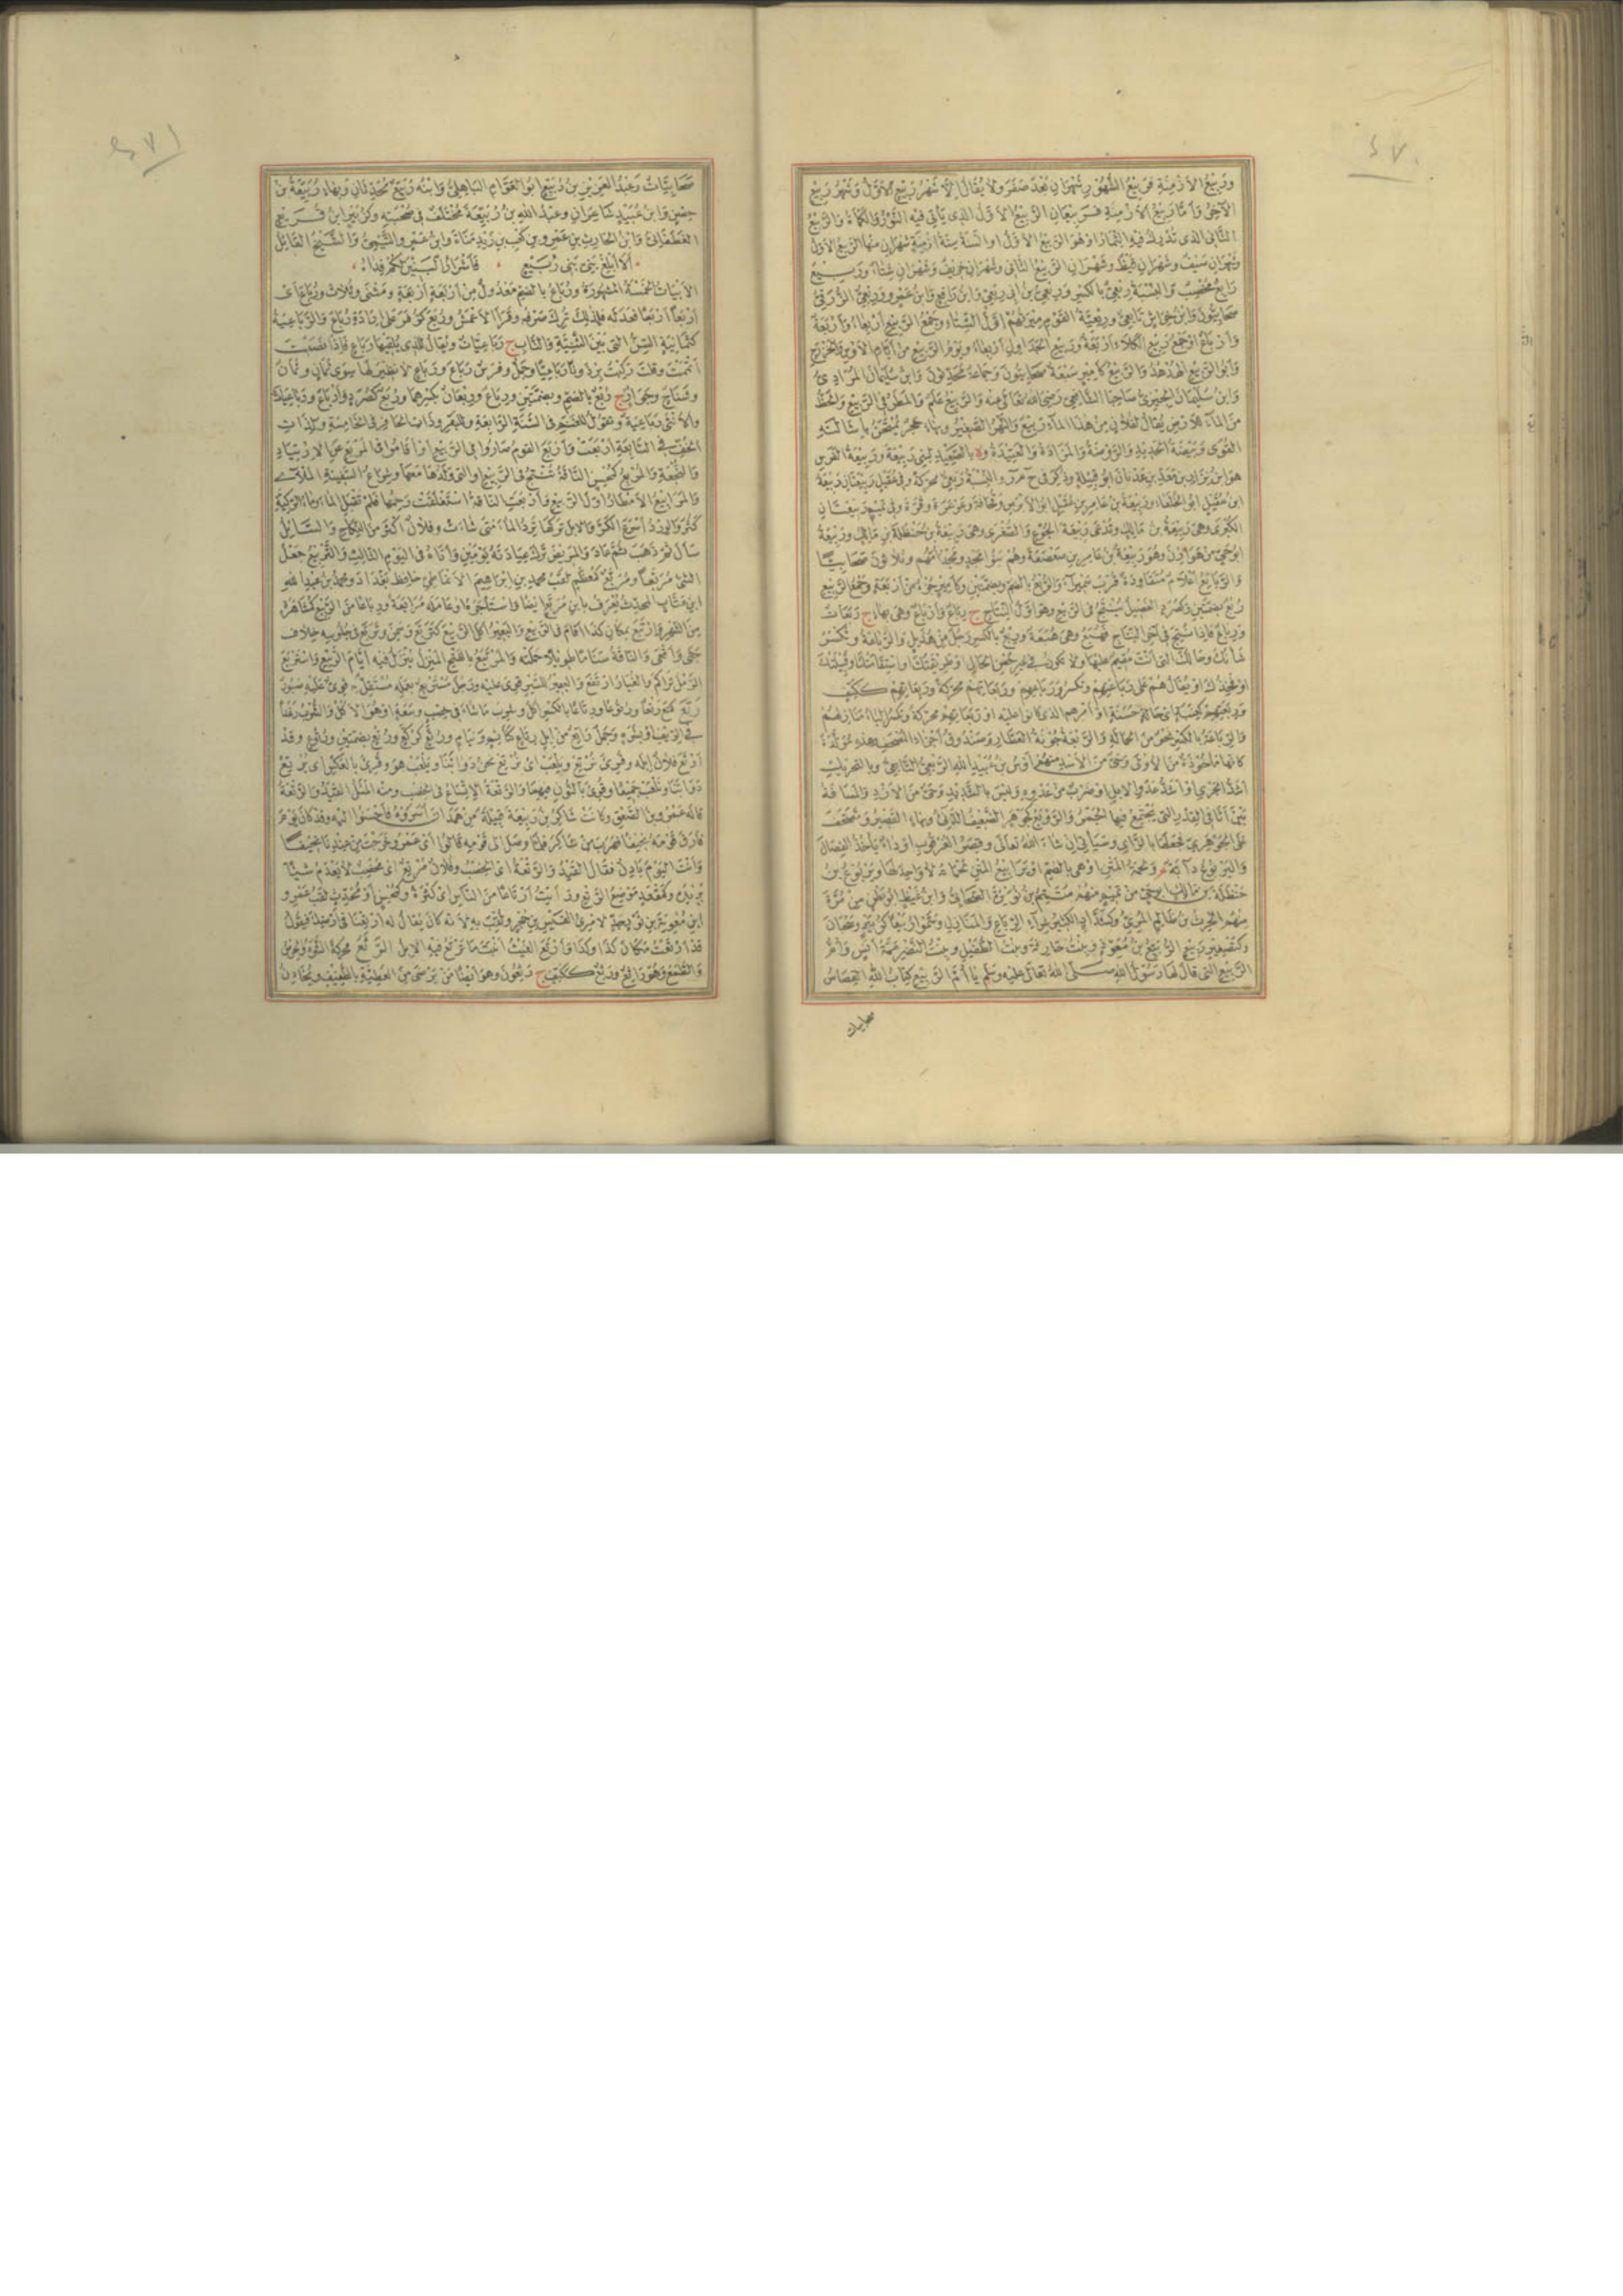 ٢٧٠
وربيع الأزمنة فربيع الشهور شهران بعد صفر ولا يقال إلا شهر ربيع الأول وشهر ربيع
الآخر وأما ربيع الأزمنة فربيعان الربيع الأول الذي يأتي فيه النور والكمأة والربيع
الثاني الذي تدرك فيه الثمار أو هو الربيع الأول أو السنة ستة أزمنة شهران منها الربيع الأول
وشهران صيف وشهران قيظ وشهران الربيع الثاني وشهران خريف وشهران شتاء وربيع
رابع مخصب والنسبة ربعي بالكسر وربعي بن أبي ربعي وابن رافع وابن عمرو وربعي الزرقي
صحابيون وابن حراش تابعي وربعية القوم ميرتهم أول الشتاء وجمع الربيع أربعاء وأربعة
وأرباع أو جمع ربيع الكلأ أربعة وربيع الجداول أربعاء ويوم الربيع من أيام الأوس والخزرج
وأبو الربيع الهدهد والربيع كأمير سبعة صحابيون وجماعة محدثون وابن سليمان المرادي
وابن سليمان الجيزي صاحبا الشافعي رضي الله تعالى عنه والربيع علم والمطر في الربيع والحظ
من الماء للأرض يقال لفلان من هذا الماء ربيع والنهر الصغير وبهاء حجر يمتحن بإشالته
القوى وبيضة الحديد والروضة والمزادة والعتيدة ولا بالصعيد لبني ربيعة وربيعة الفرس
هو ابن نزار بن معد بن عدنان أبو قبيلة وذكر في ح م ر والنسبة ربعي محركة وفي عقيل ربيعتان ربيعة
ابن عقيل أبو الخلعاء وربيعة بن عامر بن عقيل أبو الأبرص وقحافة وعرعرة وقرة وفي تميم ربيعتان
الكبرى وهي ربيعة بن مالك وتدعى ربيعة الجوع والصغرى وهي ربيعة بن حنظلة بن مالك وربيعة
أبو حي من هوازن وهو ربيعة بن عامر بن صعصعة وهم بنو مجد ومجد أمهم وثلاثون صحابيا
والربائع أعلام متقاودة قرب سميراء والربع بالضم وبضمتين وكأمير جزء من أربعة وجمع الربيع
ربع بضمتين وكصرد الفصيل ينتج في الربيع وهو أول النتاج ج رباع وأرباع وهي بهاء ج ربعات
ورباع فإذا نتج في آخر النتاج فهبع وهي هبعة وربع بالكسر رجل من هذيل والرباعة وتكسر
شأنك وحالك التي أنت مقيم عليها ولا تكون في غير حسن الحال أو طريقتك أو استقامتك أو قبيلتك
أو فخذك أو يقال هم على رباعتهم وتكسر ورباعهم وربعاتهم محركة وربعاتهم ككتف
وربعتهم كعنبة أي حالة حسنة أو أمرهم الذي كانوا عليه أو ربعاتهم محركة وتكسر الباء منازلهم
والرباعة بالكسر نحو من الحمالة والربعة جونة العطار وصندوق أجزاء المصحف وهذه مولدة
كأنها مأخوذة من الأولى وحي من الأسد منهم أوس بن عبيد الله الربعي التابعي وبالتحريك
أشد الجري أو أشد عدو الإبل أو ضرب من عدوه وليس بالشديد وحي من الأزد والمسافة
بين أثافي القدر التي يجتمع فيها الجمر والروبع كجوهر الضعيف الدنيء وبهاء القصير وتصحف
على الجوهري فجعلها بالزاي وسيأتي إن شاء الله تعالى وقصر العرقوب أو داء يأخذ الفصال
واليربوع دابة م ولحمة المتن أو هي بالضم أو يرابيع المتن لحماته لا واحد لها ويربوع بن
حنظلة بن مالك أبو حي من تميم منهم متمم بن نويرة الصحابي وابن غيظ أبو بطن من مرة
منهم الحرث بن ظالم المري وكشداد الكثير شراء الرباع والمنازل وسموا ربيعا كزبير وسحبان
وكتصغير ربيع الربيع بن معوذ وبنت حارثة وبنت الطفيل وبنت النضر عمة أنس وأم
الربيع التي قال لها رسول الله صلى الله تعالى عليه وسلم يا أم الربيع كتاب الله القصاص
صحابيات
٢٧١
صحابيات وعبد العزيز بن ربيع أبو العوام الباهلي وابنه ربيع محدثان وبهاء ربيعة بن
حصن وابن عبيد شاعران وعبد الله بن ربيعة مختلف في صحبته وكزبير ابن قريع
الغطفاني وابن الحارث بن عمرو بن كعب بن زيد مناة وابن عمرو التيمي والشيخ القائل
ألا أبلغ بني بني ربيع فأشرار البنين لكم فداء
الأبيات الخمسة المشهورة ورباع بالضم معدول من أربعة أربعة ومثنى وثلاث ورباع أي
أربعا أربعا فعدله فلذلك ترك صرفه وقرأ الأعمش وربع كزفر على إرادة رباع والرباعية
كثمانية السن التي بين الثنية والناب ج رباعيات ويقال للذي يلقيها رباع فإذا نصبت
أتممت وقلت ركبت برذونا رباعيا وجمل وفرس رباع ورباع لا نظير لها سوى ثمان ويمان
وشناح وجوار ج ربع بالضم وبضمتين ورباع وربعان بكسرهما وربع كصرد وأرباع ورباعيات
والأنثى رباعية وتقول للغنم في السنة الرابعة وللبقر وذات الحافر في الخامسة ولذات
الخف في السابعة أربعت وأربع القوم صاروا في الربيع أو أقاموا في المربع عن الارتياد
والنجعة والمربع كمحسن الناقة تنتج في الربيع أو التي ولدها معها وشراع السفينة الملأى
والمرابيع الأمطار أول الربيع وأربعت الناقة استغلقت رحمها فلم تقبل الماء وماء الركية
كثر والورد أسرع الكر والإبل تركها ترد الماء متى شاءت وفلان أكثر من النكاح والسائل
سأل ثم ذهب ثم عاد والمريض ترك عيادته يومين وأتاه في اليوم الثالث والتربيع جعل
الشيء مربعا ومربع كمعظم لقب محمد بن إبراهيم الأنماطي حافظ بغداد ومحمد بن عبد الله
ابن عتاب المحدث يعرف بابن مربع أيضا واستأجره أو عامله مرابعة ورباعا من الربيع كمشاهرة
من الشهر وارتبع بمكان كذا أقام في الربيع والبعير أكل الربيع كتربع وسمن وتربع في جلوسه خلاف
جثى وأقعى والناقة سناما طويلا حملته والمرتبع بالفتح المنزل ينزل فيه أيام الربيع واستربع
الرمل تراكم والغبار ارتفع والبعير للسير قوي عليه ورجل مستربع بعمله مستقل به قوي عليه صبور
رتع كمنع رتعا ورتوعا ورتاعا بالكسر أكل وشرب ما شاء في خصب وسعة أو هو الأكل والشرب رغدا
في الريف أو بشره وجمل راتع من إبل رتاع كنائم ونيام ورتع كركع ورتع بضمتين ورتوع وقد
أرتع فلان إبله وقرئ نرتع ويلعب أي نرتع نحن دوابنا ويلعب هو وقرئ بالعكس أي يرتع
دوابنا ونلعب جميعا وقرئ بالنون فيهما والرتعة الاتساع في الخصب ومنه المثل القيد والرتعة
قاله عمرو بن الصعق وكانت شاكر بن ربيعة قبيلة من همدان أسروه فأحسنوا إليه وقد كان يوم
فارق قومه نحيفا فهرب من شاكر فلما وصل إلى قومه قالوا أي عمرو خرجت من عندنا نحيفا
وأنت اليوم بادن فقال القيد والرتعة أي الخصب وفلان مرتع أي مخصب لا يعدم شيئا
يريده وكمقعد موضع الرتع ورأيت أرتاعا من الناس أي كثرة وكمحسن أو محدث لقب عمرو
ابن معوية بن ثور جد لامرئ القيس بن حجر ولقب به لأنه كان يقال له أرتعنا في أرضك فيقول
قد أرتعت مكان كذا وكذا وأرتع الغيث أنبت ما ترتع فيه الإبل الرثع محركة الشره والحرص
والطمع وهو راثع ورثع ككتف ج رثعون وهو أيضا من يرضى من العطية بالطفيف ويخادن